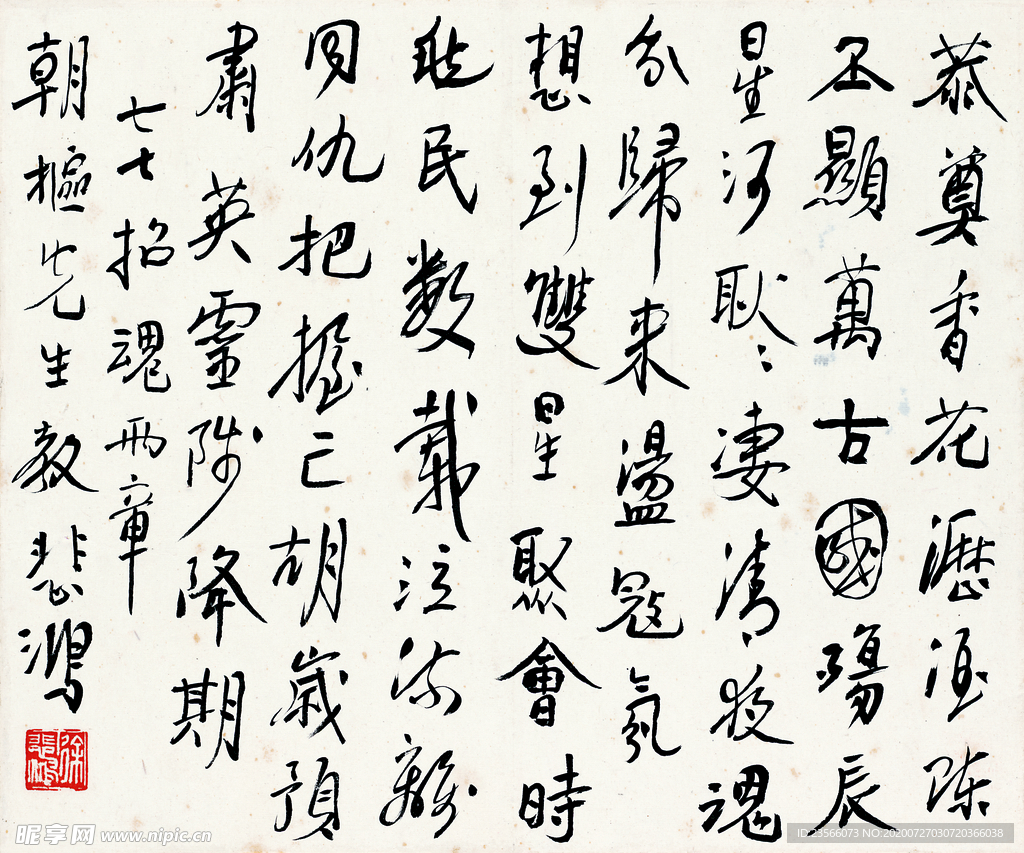 恭奠香花瀝酒陳
丕顯萬古國殤辰
星河耿々淒清夜魂
兮歸來盪寇氛
想到雙星聚會時
民數載泣流離
同仇把握亡胡歲預
肅英靈陟降期
七七招魂兩章
朝樞先生教 悲鴻
徐悲鴻
昵享网 www.nipic.cn
ID:23566073 NO:20200727030720366038